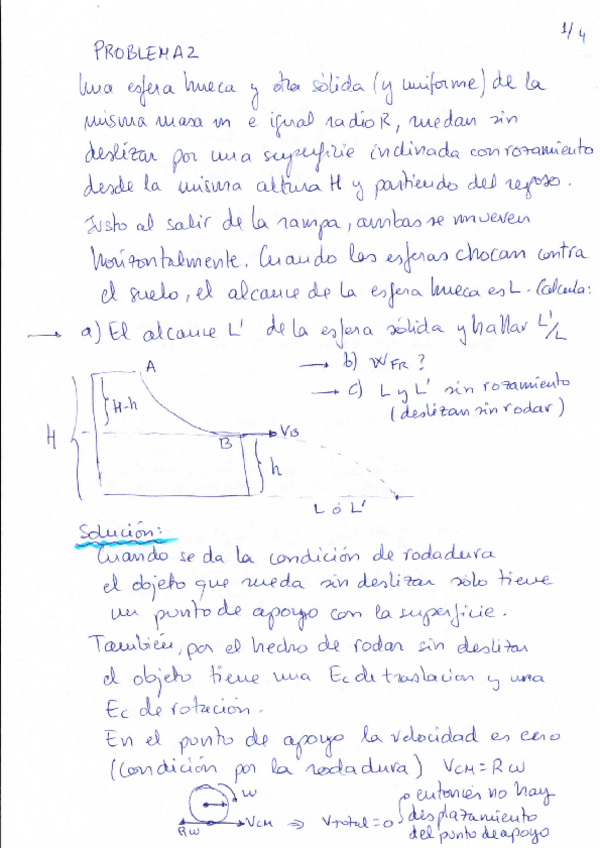 1/4
PROBLEMA 2
Una esfera hueca y otra sólida (y uniforme) de la
misma masa m e igual radio R, ruedan sin
deslizar por una superficie inclinada con rozamiento
desde la misma altura H y partiendo del reposo.
Justo al salir de la rampa, ambas se mueven
horizontalmente. Cuando las esferas chocan contra
el suelo, el alcance de la esfera hueca es L. Calcula:
→ a) El alcance L' de la esfera sólida y hallar L'/L
→ b) WFR ?
→ c) L y L' sin rozamiento
(deslizan sin rodar)
A
H-h
H
B
VB
h
L ó L'
Solución:
Cuando se da la condición de rodadura
el objeto que rueda sin deslizar sólo tiene
un punto de apoyo con la superficie.
También, por el hecho de rodar sin deslizar
el objeto tiene una Ec de traslacion y una
Ec de rotación.
En el punto de apoyo la velocidad es cero
(condición por la rodadura) VCM = Rω
ω
Rω VCM ⇒ Vtotal = 0
entonces no hay
desplazamiento
del punto de apoyo